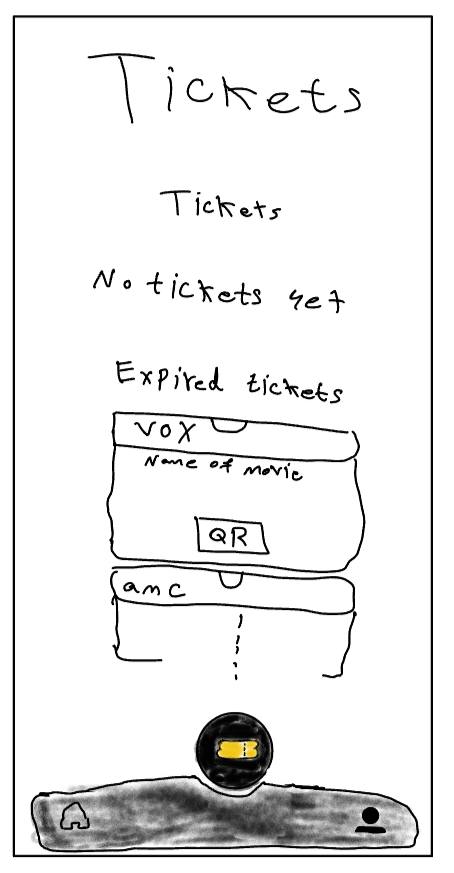 Tickets
Tickets
No tickets yet
Expired tickets
VOX
Name of movie
QR
amc